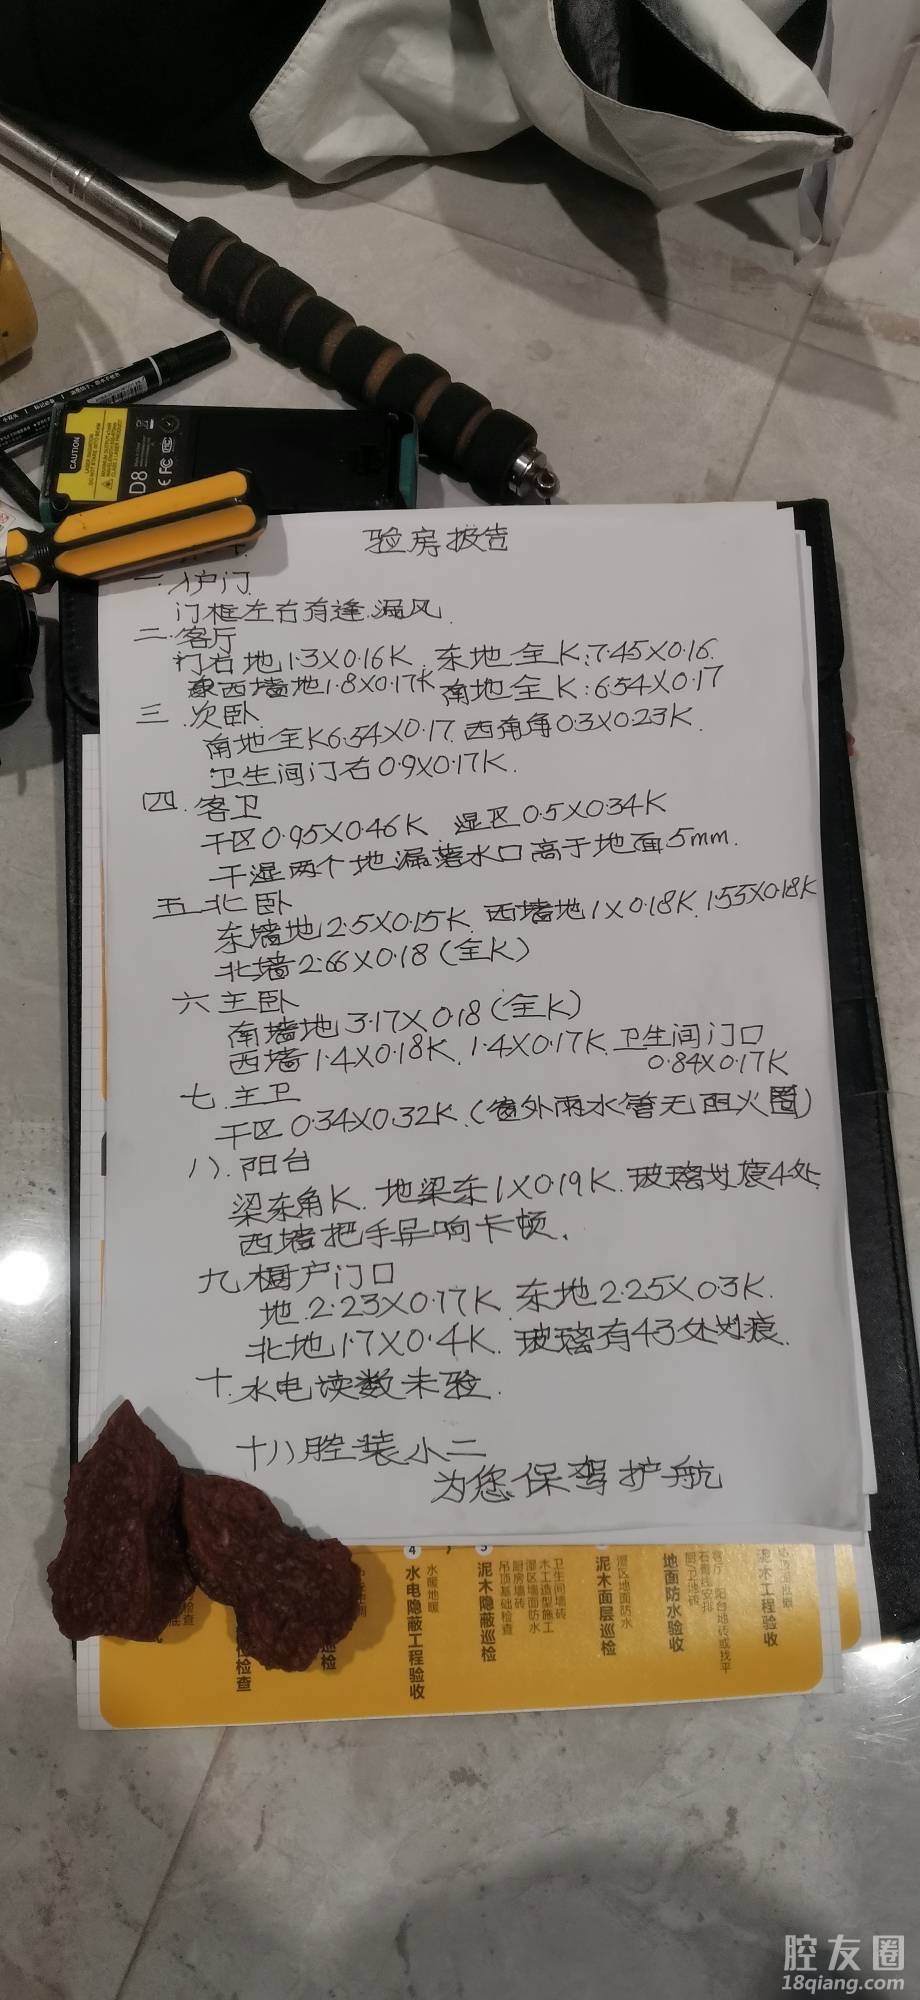 CAUTION
D8
FC
验房报告
一.入户门
门框左右有逢.漏风
二.客厅
门右地1.3X0.16K.东地全K:7.45X0.16.
西墙地1.8X0.17K 南地全K:6.54X0.17
三.次卧
南地全K6.54X0.17.西南角0.3X0.23K.
卫生间门右0.9X0.17K.
四.客卫
干区0.95X0.46K 湿区0.5X0.34K
干湿两个地漏落水口高于地面5mm.
五.北卧
东墙地2.5X0.15K.西墙地1X0.18K.1.55X0.18K
北墙2.66X0.18(全K)
六主卧
南墙地3.17X0.18(全K)
西墙1.4X0.18K.1.4X0.17K.卫生间门口
0.84X0.17K
七.主卫
干区0.34X0.32K.(窗外雨水管无阻火圈)
八.阳台
梁东角K.地梁东1X0.19K.玻璃划痕4处.
西墙把手异响卡顿.
九橱户门口
地.2.23X0.17K.东地2.25X0.3K.
北地1.7X0.4K.玻璃有43处划痕.
十.水电读数未验.
十八腔装小二
为您保驾护航
4
水电隐蔽工程验收
水暖地暖
5
泥木隐蔽巡检
吊顶基础检查
厨房墙砖
湿区墙面防水
木工造型施工
卫生间墙砖
泥木面层巡检
湿区地面防水
地面防水验收
厨卫地砖
石膏线安排
客厅、阳台地砖或找平
泥木工程验收
检查
腔友圈
18qiang.com